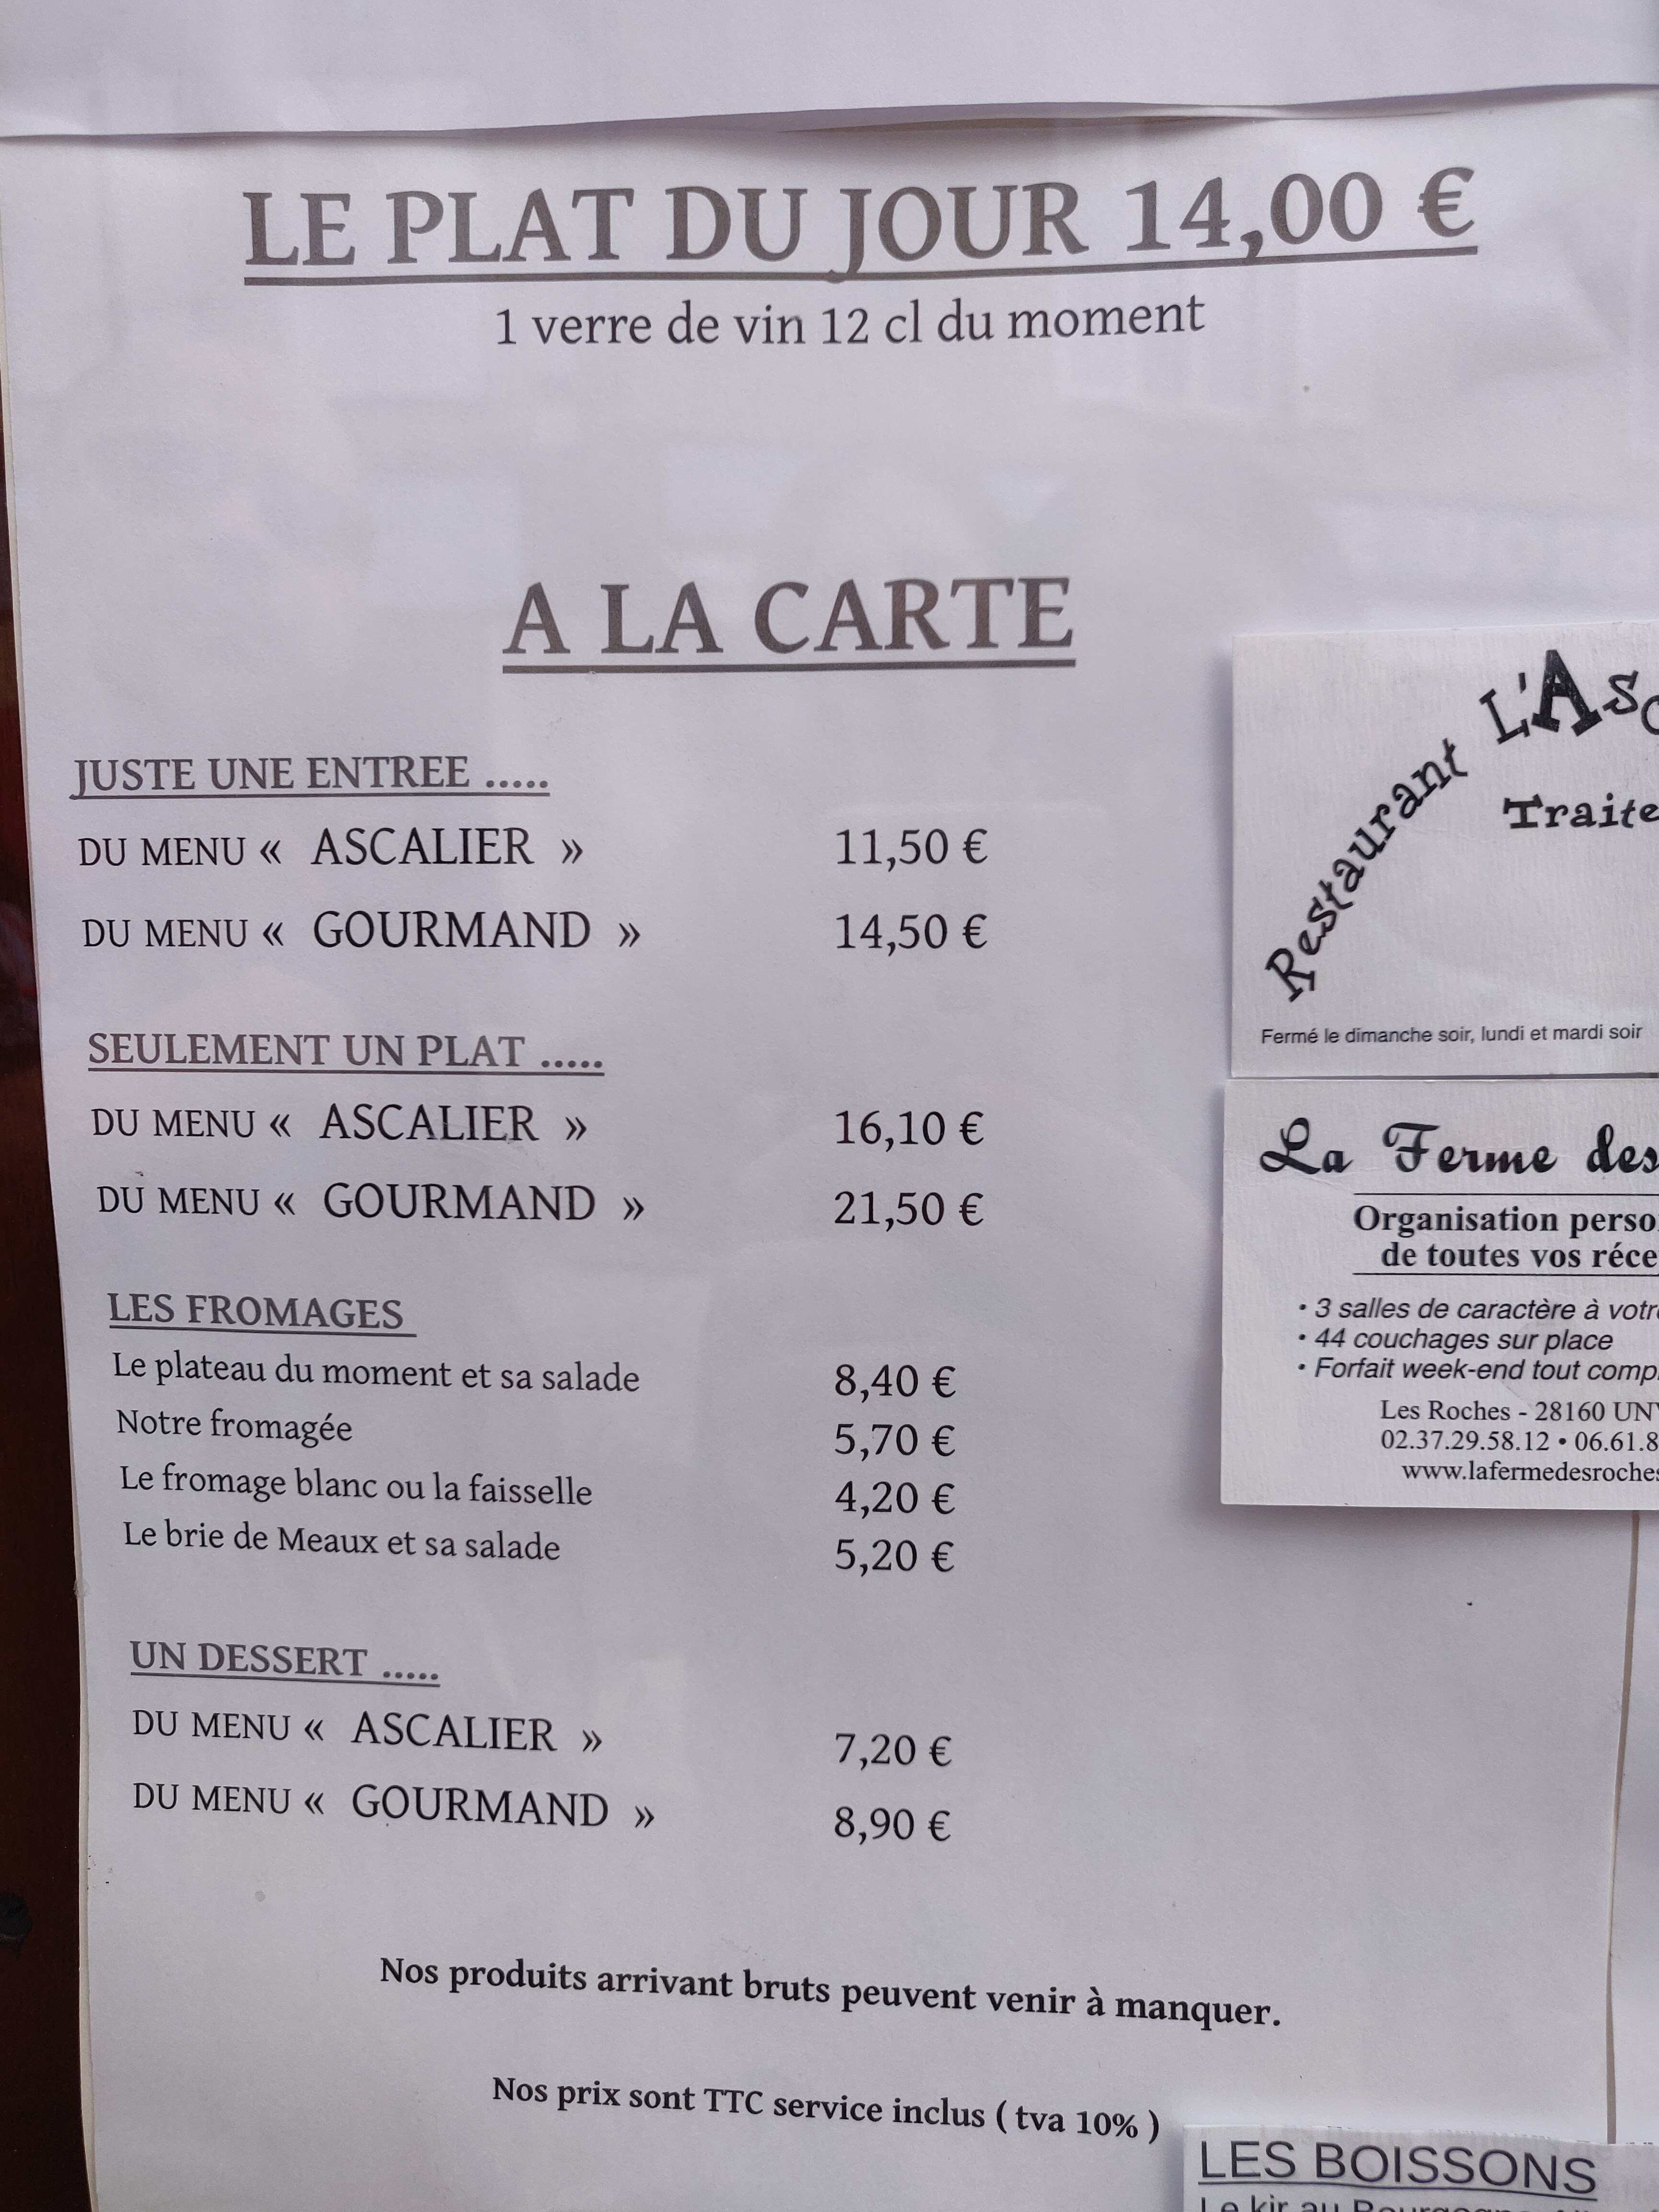 LE PLAT DU JOUR 14,00 €
1 verre de vin 12 cl du moment
A LA CARTE
JUSTE UNE ENTREE .....
DU MENU « ASCALIER » 11,50 €
DU MENU « GOURMAND » 14,50 €
SEULEMENT UN PLAT .....
DU MENU « ASCALIER » 16,10 €
DU MENU « GOURMAND » 21,50 €
LES FROMAGES
Le plateau du moment et sa salade 8,40 €
Notre fromagée 5,70 €
Le fromage blanc ou la faisselle 4,20 €
Le brie de Meaux et sa salade 5,20 €
UN DESSERT .....
DU MENU « ASCALIER » 7,20 €
DU MENU « GOURMAND » 8,90 €
Nos produits arrivant bruts peuvent venir à manquer.
Nos prix sont TTC service inclus ( tva 10% )
Restaurant L'As
Traite
Fermé le dimanche soir, lundi et mardi soir
La Ferme des
Organisation perso
de toutes vos réce
• 3 salles de caractère à votr
• 44 couchages sur place
• Forfait week-end tout comp
Les Roches - 28160 UN
02.37.29.58.12 • 06.61.8
www.lafermedesroches
LES BOISSONS
Le kir au